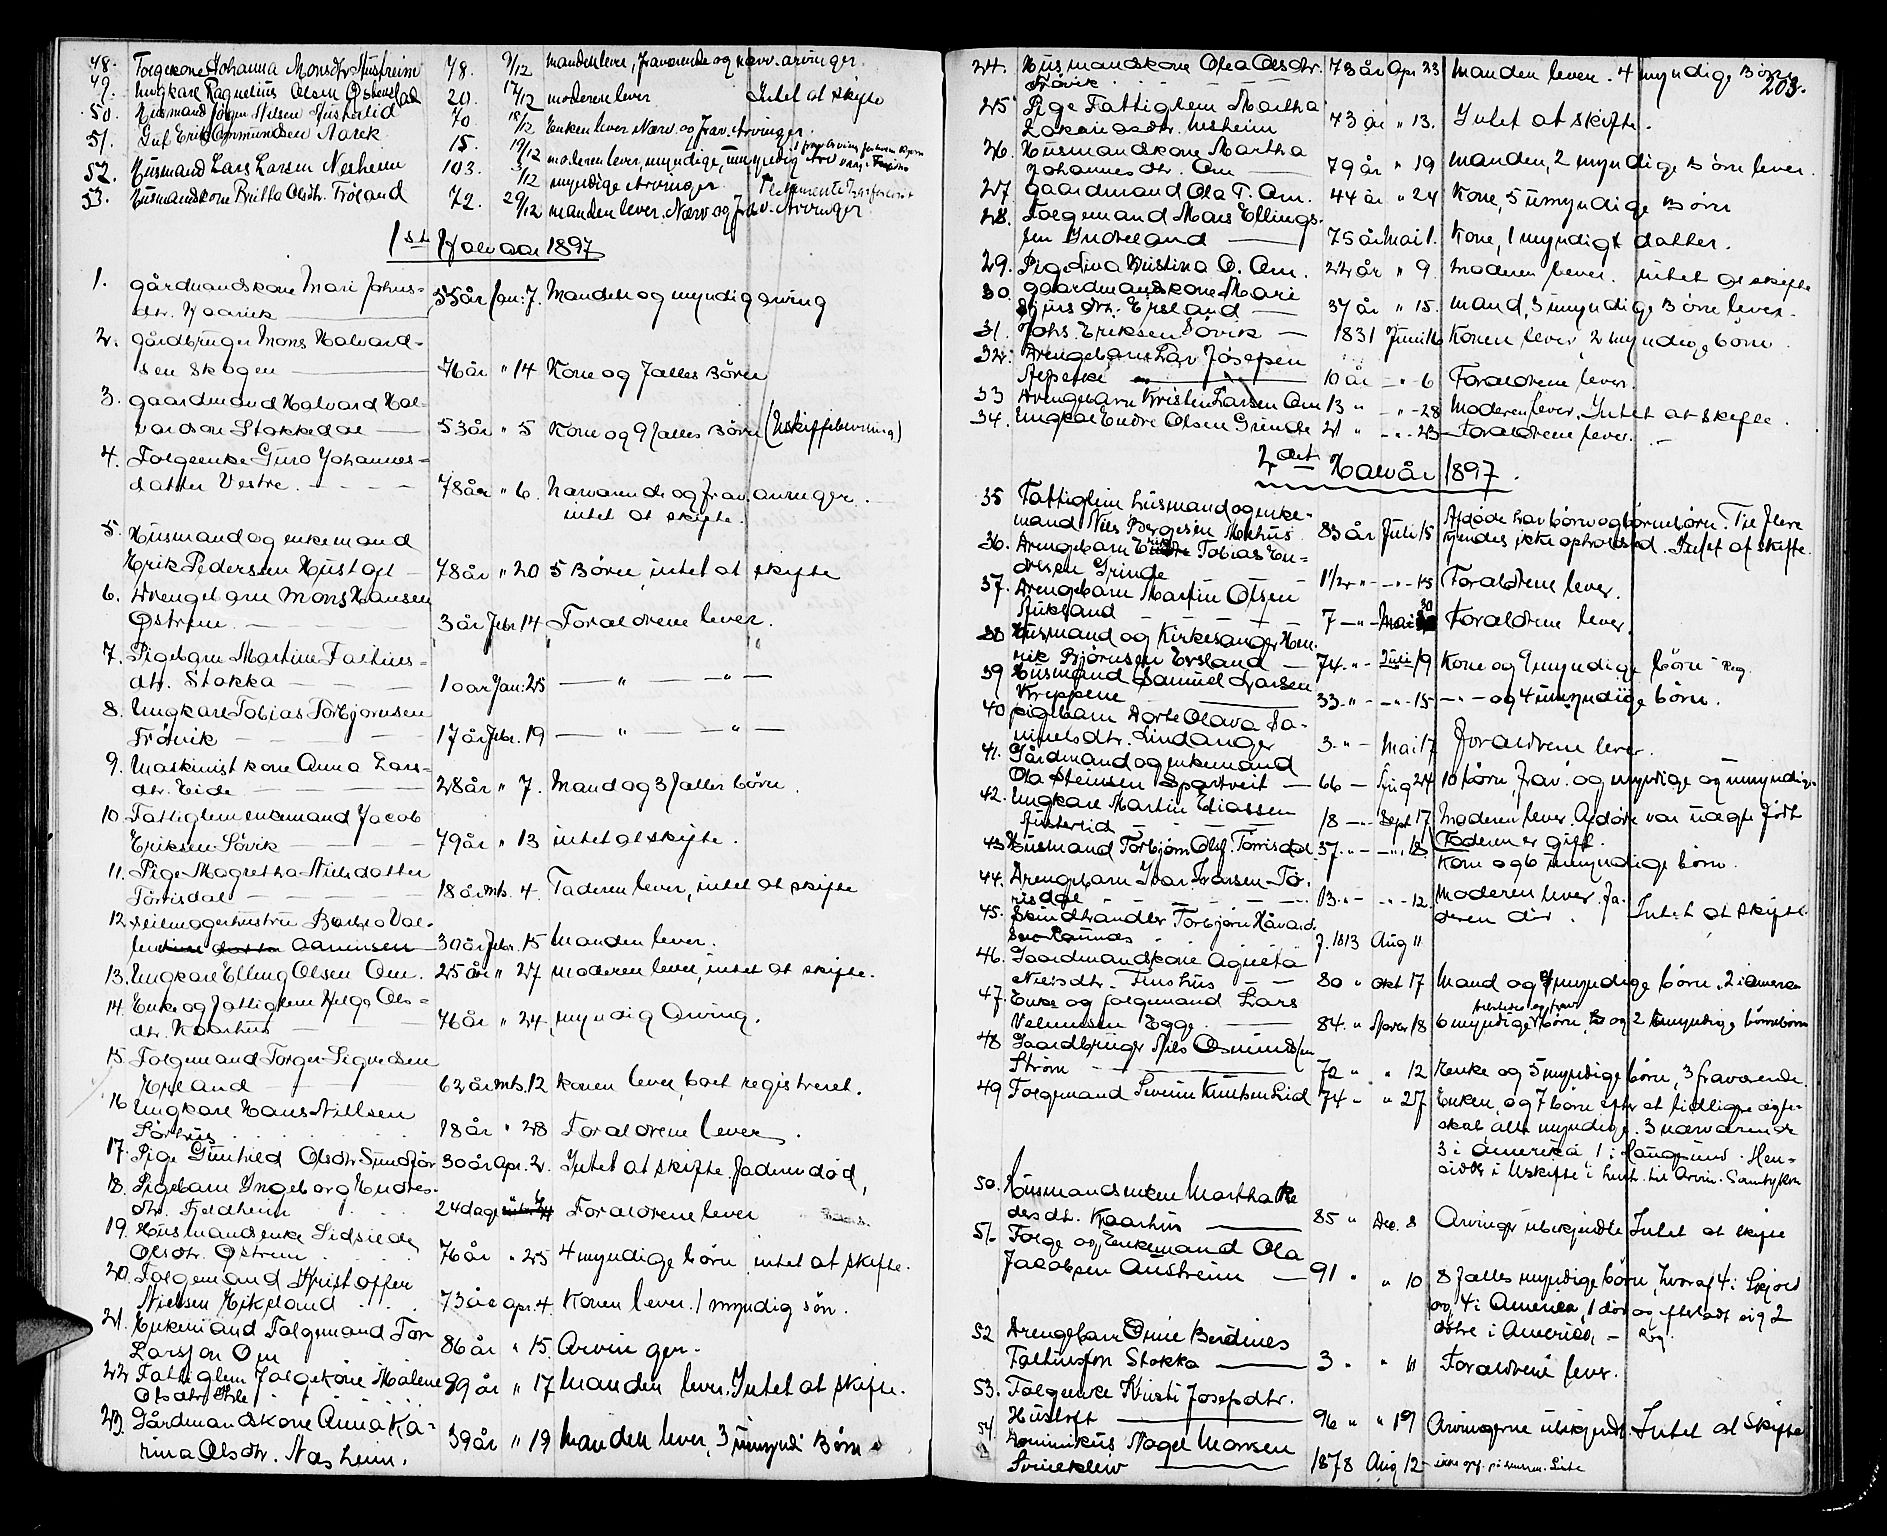 48. Folgekone Johanna Monsdtr Austreim 78. 9/12 manden lever, fraværende og nærv. arvinger.
49. Ungkarl Ragnelius Olsen 20. 17/12 moderen lever Intet at skifte
50. Husmand Nilsen 70. 18/12 Enken lever Nærv. og frav. Arvinger.
51. Gut Erik Omundsen Aarek 15. 19/12 moderen lever, myndige, umyndig
52. Husmand Lars Larsen Nesheim 103. 3/12 myndige Arvinger
53. Husmandskone Britha Olsdtr. Frøland 72. 29/12 manden lever. Nærv og frav. Arvinger.
1st Halvaar 1897
1. gårdmandskone Mari Johns-
dtr. Haarik 55 år Jan: 7. Manden og myndig arving
2. gårdbruger Mons Halvard-
sen Skogen 76 år " 14 Kone og fælles Børn
3. gaardmand Halvard Hal-
vardsen Stokkedal 53 år " 5 Kone og 9 fælles Børn (Uskiftebevilling)
4. Folgeenke Guro Johannes-
datter Vestre 78 år " 6. nærværende og frav. arvinger.
intet at skifte.
5. Husmand og enkemand
Erik Pedersen Hustoft 78 år " 20 5 Børn, intet at skifte
6. Drengebarn Mons Hansen
Østrem 3 år Febr. 14 Forældrene lever.
7. Pigebarn Martine Faltins-
dtr. Stokka 10 år Jan: 25 — " — — " —
8. Ungkarl Tobias Torbjørnsen
Frövik 17 år Febr. 19 — " — — " —
9. Maskinist kone Anna Lars-
dtr. Eide 28 år " 7. Mand og 3 fælles børn.
10. Fattiglem enkemand Jacob
Eriksen Sövik 79 år " 13 intet at skifte.
11. Pige Magretha Nielsdatter
Törrisdal 18 år Mts. 4. Faderen lever, intet at skifte
12. Seilmagerhustru
30 år Febr. 15 Manden lever.
13. Ungkarl Elling Olsen Am. 25 år " 27 moderen lever, intet at skifte.
14. Enke og fattiglem Helge Ols-
dtr. Kaarhus 76 år " 24. myndig Arving.
15. Folgemand Torger Sigvedsen
Ersland 62 år Mts. 12 konen lever, boet registreret.
16 Ungkarl Hans Nillsen
Sörhus 18 år " 28 Forældrene lever.
17. Pige Gunhild Olsdtr Sundför 30 år Apr. 2. Intet at skifte, faderen död,
18. Pigebarn Ingeborg Endres-
dtr. Fjeldheim 24 dage Forældrene lever
19. Husmandsenke Sidsel
Olsdtr. Østrem 76 år " 25 4 myndige børn intet at skifte.
20. Folgemand Kristoffer
Nielsen Eikeland 73 år Apr. 4. Konen lever. 1 myndig sön.
21. Enkemand Folgemand Tor
Larssen Om 86 år " 15 Arvinger.
22 Fattiglem Folgekone Malene
Olsdtr 89 år " 17 Manden lever. Intet at skifte.
23. Gårdmandskone Anna Ka-
rina Olsdtr. Nesheim. 39 år " 19 Manden lever, 3 umyndi Børn
203.
24. Husmandskone Olea Olsdtr. 73 år Apr 23 Manden lever. 4 myndige Børn
Frövik
25 Pige Fattiglem Martha
Zakariasdtr. Nesheim 73 år " 13. Intet at skifte.
26. Husmandskone Martha
Johannesdtr. Am 79 år " 19 manden, 2 myndige Børn lever.
27. gaardmand Ola T. Am. 44 år " 24 Kone, 5 umyndige Børn
28. Folgemand Mons Ellings-
sen Indreland 75 år Mai 1. Kone, 1 myndigt datter.
29. Pige Lina Kristina O. Am. 22 år " 9. Moderen lever. intet at skifte
30. gaardmandskone Mari
Sjursdtr. Ersland 37 år " 15. mand, 3 umyndige Børn lever.
31. Johs. Eriksen Sövik 1831 Juni 16 Konen lever, 2 myndige børn.
32. Drengebarn Lars Josefsen
10 år — " 6 Forældrene lever.
33 Drengebarn Kristen Larsen Am 13 " — " 28 Moderen lever. Intet at skifte.
34. Ungkarl Endre Olsen Grinde 21 " — " 23 Forældrene lever.
2det Halvår 1897.
35 Fattiglem husmand og enke-
mand Nils Börgesen Mehus 83 år Juli 15 Afdøde har børn og börnebörn. Til flere
kjendes ikke opholdsted. Intet at skifte.
36. Drengebarn Tobias En-
dresen Grinde 1 1/2 " — " — 15 Forældrene lever.
37. Drengebarn Martin Olsen
Auksland 7 — " — Mai 30 Forældrene lever.
38 Husmand og Kirkesanger Hen-
rik Bjørnsen Ersland 74. " — Juli 19 Kone og 9 myndige børn Reg.
39 Husmand Samuel Larsen
Kreppene 33 — " — — " — 15 — " — og 4 umyndige børn.
40 pigebarn Dorte Olava Sa-
muelsdtr. Lindanger 3. " — Mai 17 Forældrene lever.
41. Gårdmand og enkemand
Ola Steinsen Spartveit 66 — Aug 24 10 børn, frav. og myndige og umyndige
42. Ungkarl Martin Eliassen
18 — " — Sept 17 Moderen lever. Afdøde var uægte født
Faderen er gift.
43 Husmand Torbjörn Olsf. Törrisdal 57. " — — " — 18 Kone og 6 umyndige børn.
44. Drengebarn Ivar Ivarsen Tör-
risdal 13. " — — " — 12. Moderen lever. Fa-
deren död. Intet at skifte
45. Skindhandler Torbjörn Håvard-
sen Raunæs f. 1813 Aug 11
46. Gaardmandskone Agneta
Nielsdtr. Finshus 80 " Okt 17 Mand og myndige børn. 2 i Amerika
47. Enke og folgemand Lars
Velumsen Egge 84. " Novbr 18 6 myndige børn, og 2 umyndige börnebörn
48 Gaardbruger Nils Osmundsen
Ström 72 " " 12 Enke og 5 myndige børn, 3 fraværende.
49 Folgemand Severin Knutsen Lid 74 — " 27 Enken og 7 børn efter et tidligere ægte-
skab alle myndige. 3 nærværende
3 i Amerika 1 i Haugesund. Hen-
50. Husmandsenken Martha Pe
dersdtr. Kaarhus 85 " Dec. 8 Arvinger ubekjendte Intet at skifte
51. Folge og Enkemand Ola
Jacobsen Austreim 91 " " 10 8 fælles myndige børn, hvoraf 4 i Skjold
og 4 i Amerika, 1 död og efterladt sig 2
døtre i Amerika, — Reg.
52 Drengebarn Orine Berdines
Faltinssøn Stokka 3 " " 11 Forældrene lever.
53. Folgeenke Kristi Josefsdtr.
Hustoft 96 " " 19 Arvingerne ubekjendt Intet at skifte
54. Dominikus Nagel Monsen
Svineklev 1878 Aug 12